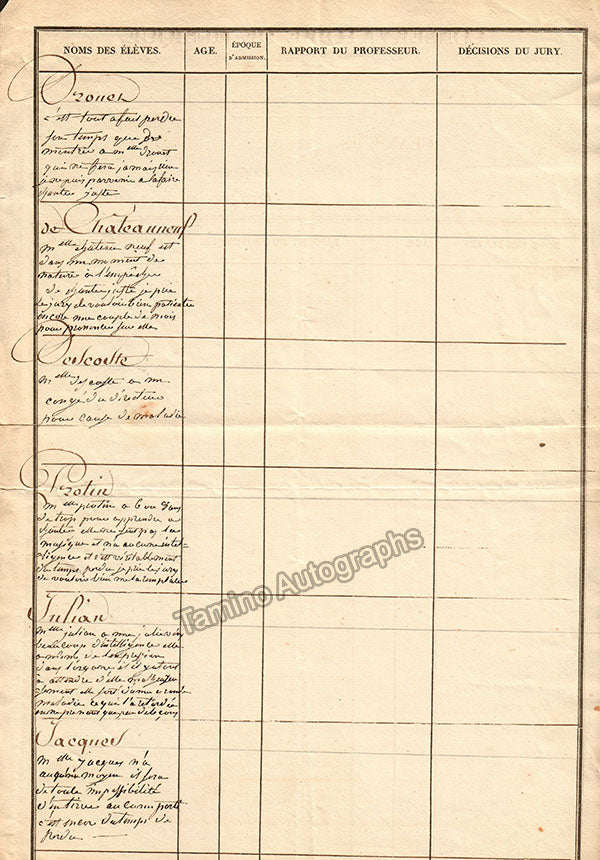 NOMS DES ÉLÈVES. AGE. ÉPOQUE D'ADMISSION. RAPPORT DU PROFESSEUR. DÉCISIONS DU JURY.
Drouet
c'est tout a fait perdre
son temps que de
montrer a m elle Drouet
qui ne fera jamais rien
je ne puis parvenir a la faire
chanter juste
de Châteauneuf
m elle château neuf est
dans un moment de
nature à l'empêcher
de chanter juste je prie
le jury de vouloir bien patienter
encore une couple de mois
pour prononcer sur elle
Descoste
m elle descoste a un
congé du directeur
pour cause de maladie
Protin
m elle protin a 6 ou 7 ans
de trop pour apprendre a
chanter elle ne sent pas la
musique et n'a aucune intel-
ligence et c'est véritablement
du temps perdu je prie le jury
de vouloir bien me la remplacer
Julian
m elle julian a une jolie voix
beaucoup d'intelligence elle
a même de l'expression
dans l'organe et il y a tout
à attendre d'elle malheureu
sement elle sort d'une grande
maladie ce qui l'a retardée
en ne prenant que peu de leçons
Jacques
m elle jacques n'a
aucun moyen il sera
de toute impossibilité
d'en tirer aucun parti
c'est encore du temps de
perdu
Tamino Autographs